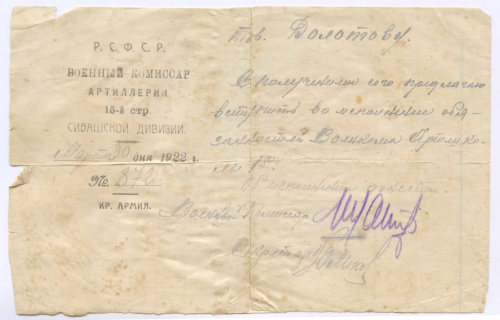 Р.С.Ф.С.Р.
ВОЕННЫЙ КОМИССАР
АРТИЛЛЕРИИ
15-й стр.
СИВАШСКОЙ ДИВИЗИИ.
Марта 30 дня 1922 г.
№ 872
КР. АРМИЯ.
тов. Долотову.
С получением сего предлагаю
вступить во исполнение обя-
занностей Военкома
Военный Комиссар
Секретарь